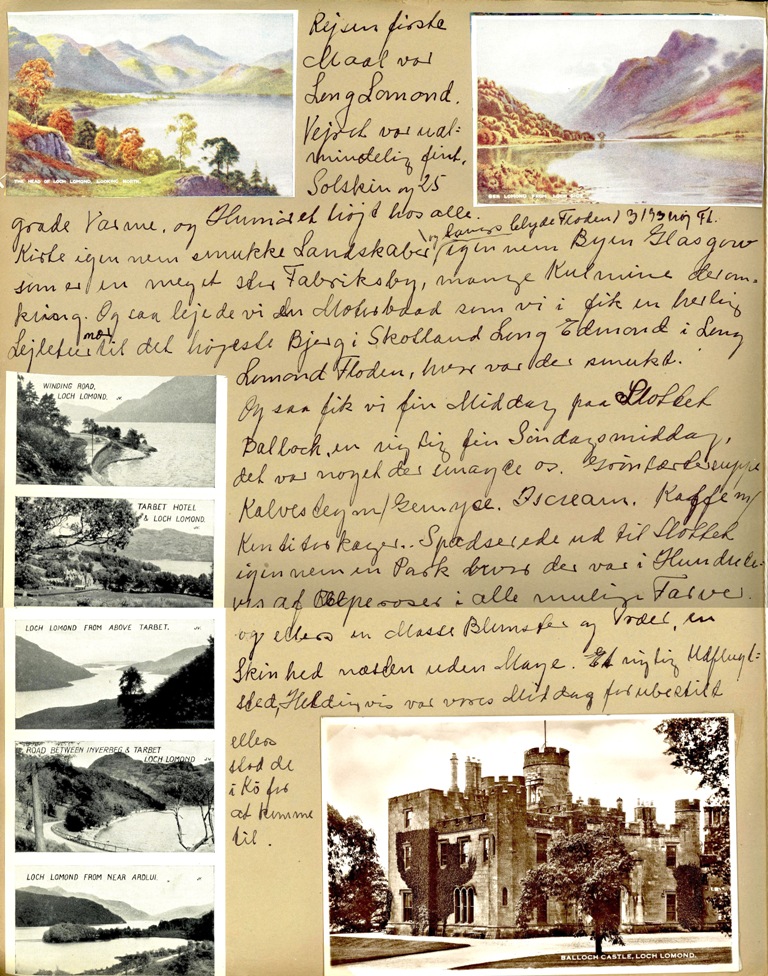 Rejsen første
Maal var
Leng Lomond.
Vejret var ual-
mindelig fint,
Solskin og 25
grade Varme, og Humøret højt hos alle.
Kørte igennem smukke Landskaber, igennem Byen Glasgow
og Clyde Floden)
som er en meget stor Fabriksby, mange Kulmine derom-
kring. Og saa lejede vi en Motorbaad som vi i fik en herlig
Sejletur til det højeste Bjerg i Skotland Leng Edmond i Leng
Lomond Floden, hvor var der smukt.
Og saa fik vi fin Middag paa Slottet
Ballock, en rigtig fin Søndagsmiddag,
det var noget der smagte os. Grønærtesuppe
Kalvesteg m/ Gemyse. Iscream. Kaffe m/
Konditorkager.. Spadserede ud til Slottet
igennem en Park hvor der var i Hundrede-
vis af Alperoser i alle mulige Farver.
og ellers en Masse Blomster og Træer, en
Skønhed næsten uden Mage. Et rigtig Udflugt-
sted, Heldigvis var vores Middag forubestilt
ellers
stod de
i Kø for
at komme
til.
THE HEAD OF LOCH LOMOND, LOOKING NORTH.
BEN LOMOND, FROM
WINDING ROAD,
LOCH LOMOND.
TARBET HOTEL
& LOCH LOMOND.
LOCH LOMOND FROM ABOVE TARBET.
ROAD BETWEEN INVERBEG & TARBET
LOCH LOMOND
LOCH LOMOND FROM NEAR ARDLUI.
BALLOCH CASTLE, LOCH LOMOND.